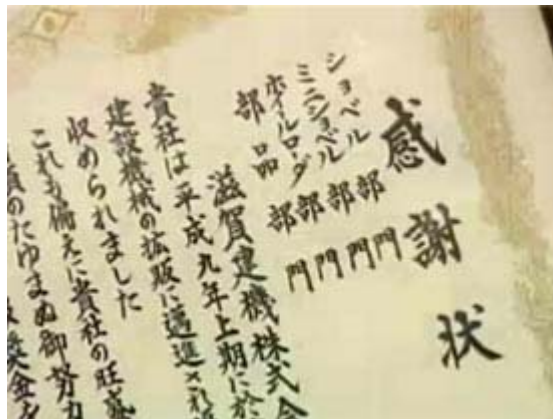 感謝状
ショベル部門
ミニショベル部門
ホイールローダ部門
部品部門
滋賀建機株式会
貴社は平成九年上期に於
建設機械の拡販に邁進され
収められました
これも偏えに貴社の旺盛
のたゆまぬ御努力
奨金を